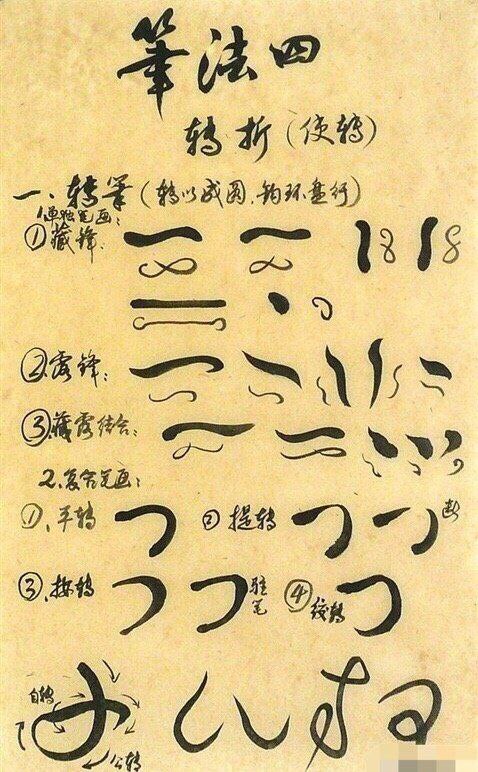 筆法四
转折(使转)
一、转笔(转以成圆,钩环盘行)
1.单独笔画:
①藏锋:
②露锋:
③藏露结合:
2.复合笔画:
①、平转 ②提转 断
③、按转 驻笔 ④绞转
自转
公转